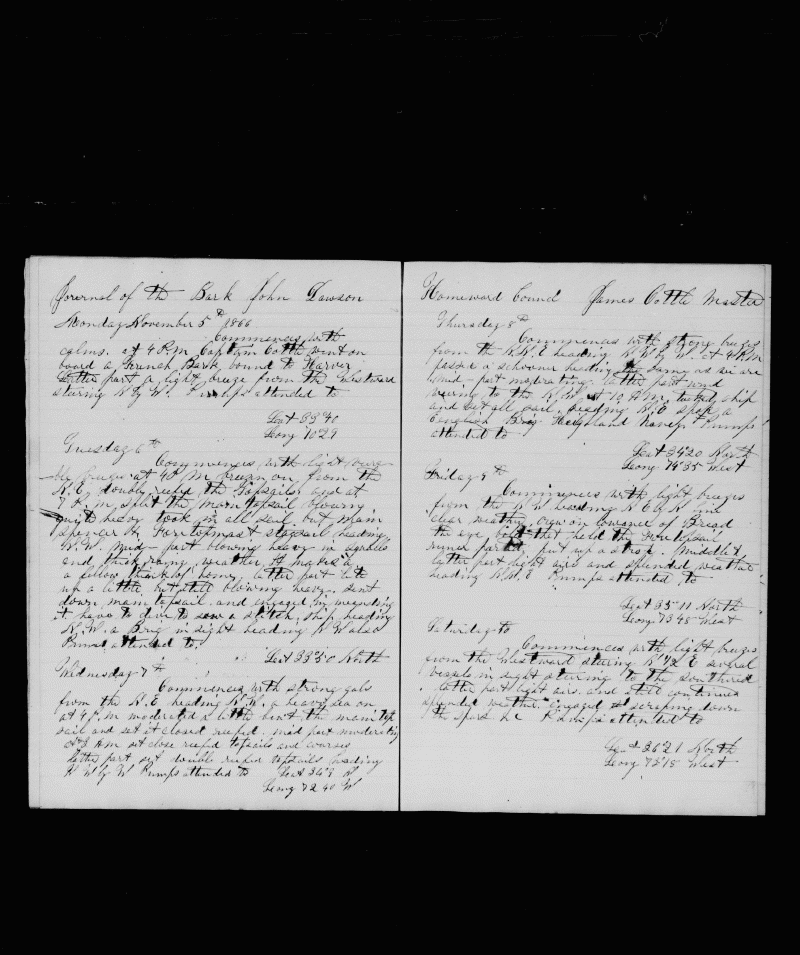 Journal of th Bark John Dawson
Monday November 5th 1866
Commences with
calms. at 4 P.m Captain Cottle went on
board a French Bark bound to Harver
Latter part a light breeze from the Westward
steuring N by W. Pumps attended to
Lat 33°40
Long 70 29
Tuesday 6th
Commences with light
breezes at 4 P.m breezn on from the
N.E, double reefed the Topsails and at
7 P.m split the main topsail blowing
quite heavy took in all sail but main
Spencer & Foretopmast staysail heading
N.W. Mid-part blowing heavy in squalls
and thick rainy weather, it makes a
a fellow think of home, latter part lets
up a little but still blowing heavy. Sent
down main topsail and engaged in
it. have to dive to sew a stitch, ship heading
N.W. a Brig in sight heading N W also
Pumps attended to,
Lat 33°50 North
Wednesday 7th
Commences with strong gals
from the N.E heading N.W. a heavy sea on
at 4 P.m moderated a little bent the main top
sail and set it closed reefed. mid part moderating
at 3 A.m set close reefed topsails and courses
Latter part set double reefed topsails heading
N W by W Pumps attended to Lat 34°3 N
Long 72 40 W
Homeward bound James Cottle Master
Thursday 8th
Commences with strong breezes
from the N.N.E heading N W by W. at 4 P.m
passed a schooner heading the same as we are
mid-part moderating. latter part wind
veering to the N.W. at 10 A.m, tacked ship
and set all sail. heading N.E spok a
English Brig Heighland Pumps
attended to
Lat 34°20 North
Long 74°35 West
Friday 9th
Commences with light breezes
from the N W heading N E by N fine
clear weather, on allowance of Bread
the eye bolt that held the Foretopsail
runer parted, put up a strop. Middle &
latter part light airs and splended weather
heading N.N.E Pumps attended to
Lat 35°11 North
Long 73 45 West
Saturday 10
Commences with light breezes
from the Westward steuring N 1/2 E several
vessels in sight stearing to the southward
latter part light airs. and still continued
splended weather. Engaged at scraping down
the spars &c Pumps attended to
Lat 36°21 North
Long 73°15 West